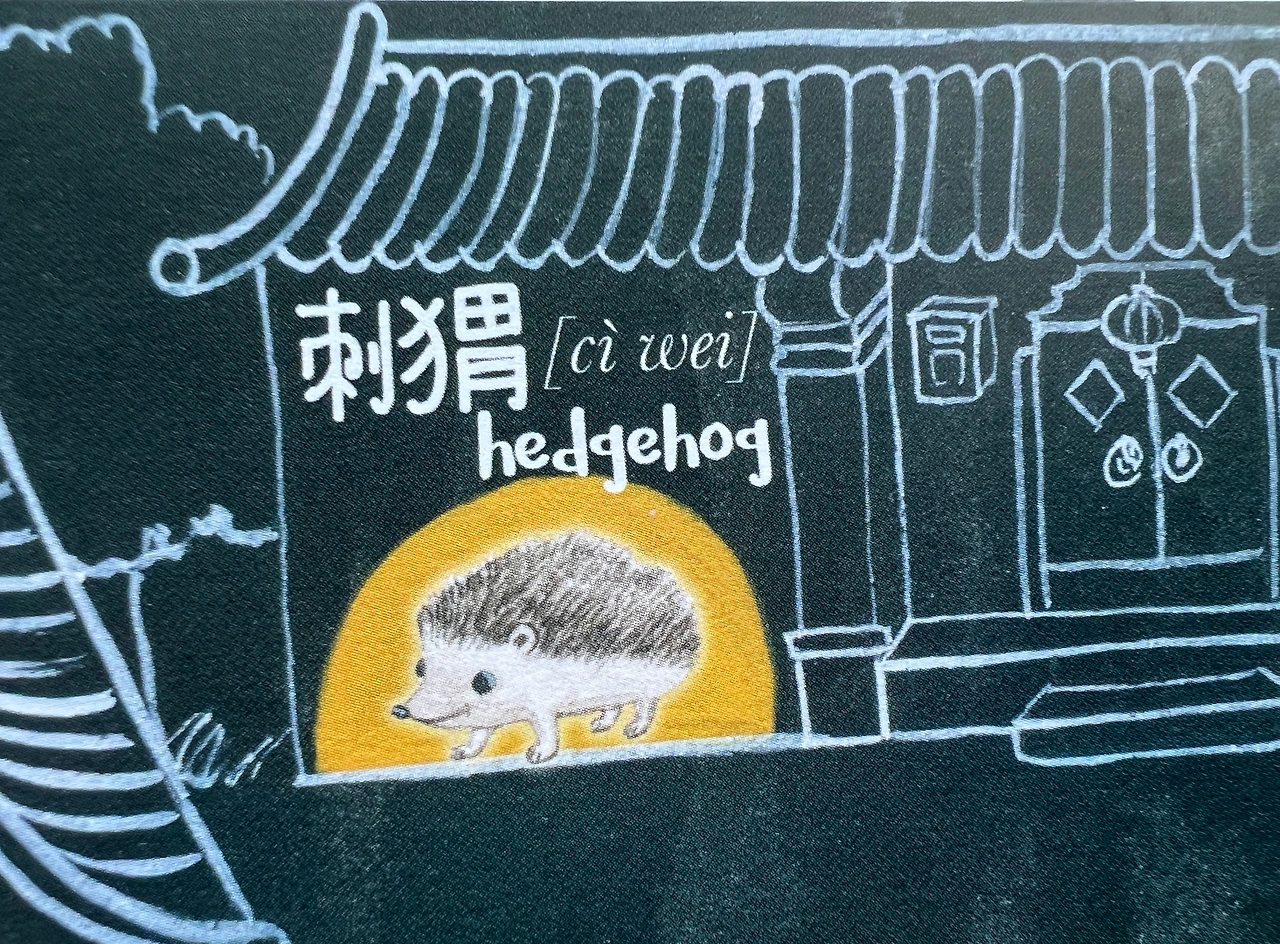 刺猬 [cì wei]
hedgehog